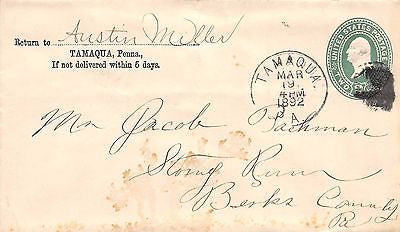 Return to Austin Miller
TAMAQUA, Penna.,
If not delivered within 5 days.
TAMAQUA.
MAR
19
4 PM
1892
PA.
UNITED STATES POSTAGE
TWO
Mr Jacob Bachman
Stony Run
Berks County
Pa